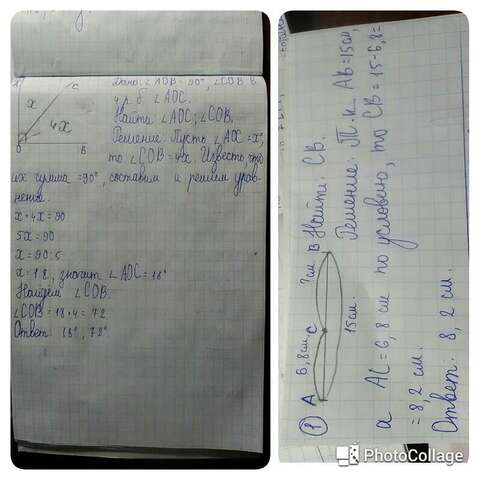 C
Дано: ∠AOB=90°, ∠COB в
4 р. б. ∠AOC.
x
4x
O
B
Найти ∠AOC; ∠COB.
Решение: Пусть ∠AOC=x°,
то ∠COB=4x. Известно, что
их сумма =90°, составим и решим урав-
нение.
x+4x=90
5x=90
x=90:5
x=18, значит ∠AOC=18°
Найдём ∠COB.
∠COB=18·4=72
Ответ: 18°, 72°
1
A
6,8см
C
?см
B
15см
Найти: CB.
Решение: Т.к AB=15см,
а AC=6,8 см по условию, то CB=15-6,8=
=8,2 см.
Ответ: 8,2 см.
PhotoCollage